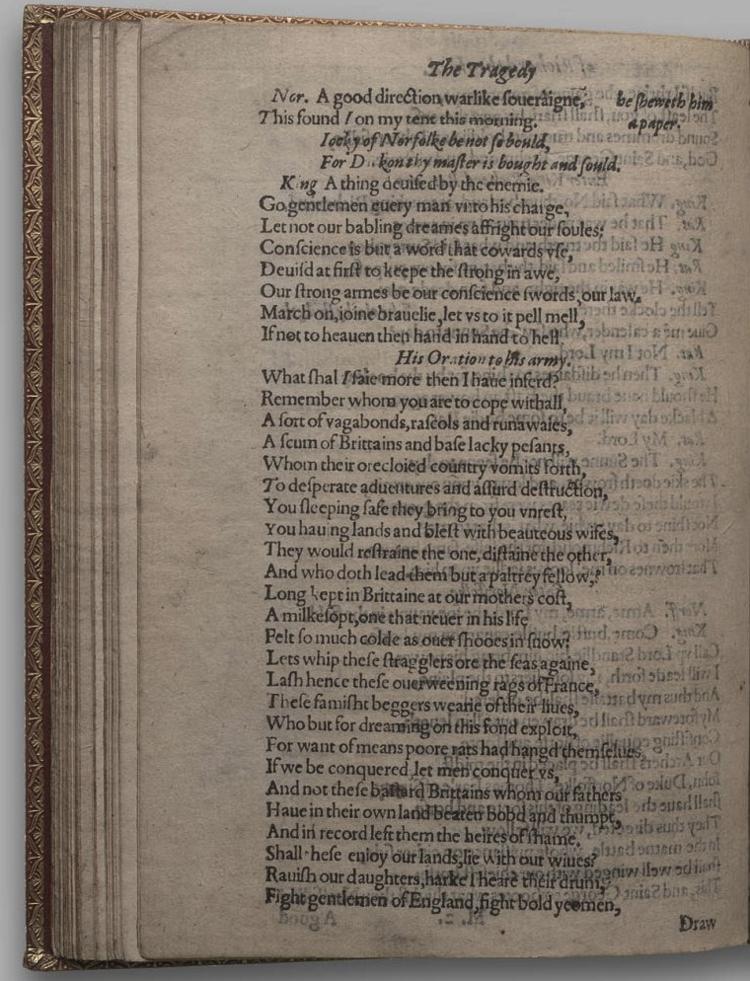 The Tragedy
Nor. A good direction warlike soueraigne, he sheweth him
This found I on my tent this morning. a paper.
Iocky of Norfolke be not so bould,
For D kon thy master is bought and sould.
King A thing deuised by the enemie.
Go gentlemen euery man vnto his charge,
Let not our babling dreames affright our soules:
Conscience is but a word that cowards vse,
Deuisd at first to keepe the strong in awe,
Our strong armes be our conscience swords, our law.
March on, ioine brauelie, let vs to it pell mell,
If not to heauen then hand in hand to hell.
His Oration to his army.
What shal I saie more then I haue inferd?
Remember whom you are to cope withall,
A sort of vagabonds, rascols and runawaies,
A scum of Brittains and base lacky pesants,
Whom their orecloied country vomits forth,
To desperate aduentures and assurd destruction,
You sleeping safe they bring to you vnrest,
You hauing lands and blest with beauteous wifes,
They would restraine the one, distaine the other,
And who doth lead them but a paltrey fellow?
Long kept in Brittaine at our mothers cost,
A milkesopt, one that neuer in his life
Felt so much colde as ouer shooes in snow:
Lets whip these stragglers ore the seas againe,
Lash hence these ouerweening rags of France,
These famisht beggers wearie of their liues,
Who but for dreaming on this fond exploit,
For want of means poore rats had hangd themselues
If we be conquered let men conquer vs,
And not these bastard Brittains whom our fathers
Haue in their own land beaten bobd and thumpt,
And in record left them the heires of shame.
Shall these enioy our lands, lie with our wiues?
Rauish our daughters, harke I heare their drum,
Fight gentlemen of England, fight bold yeomen,
Draw